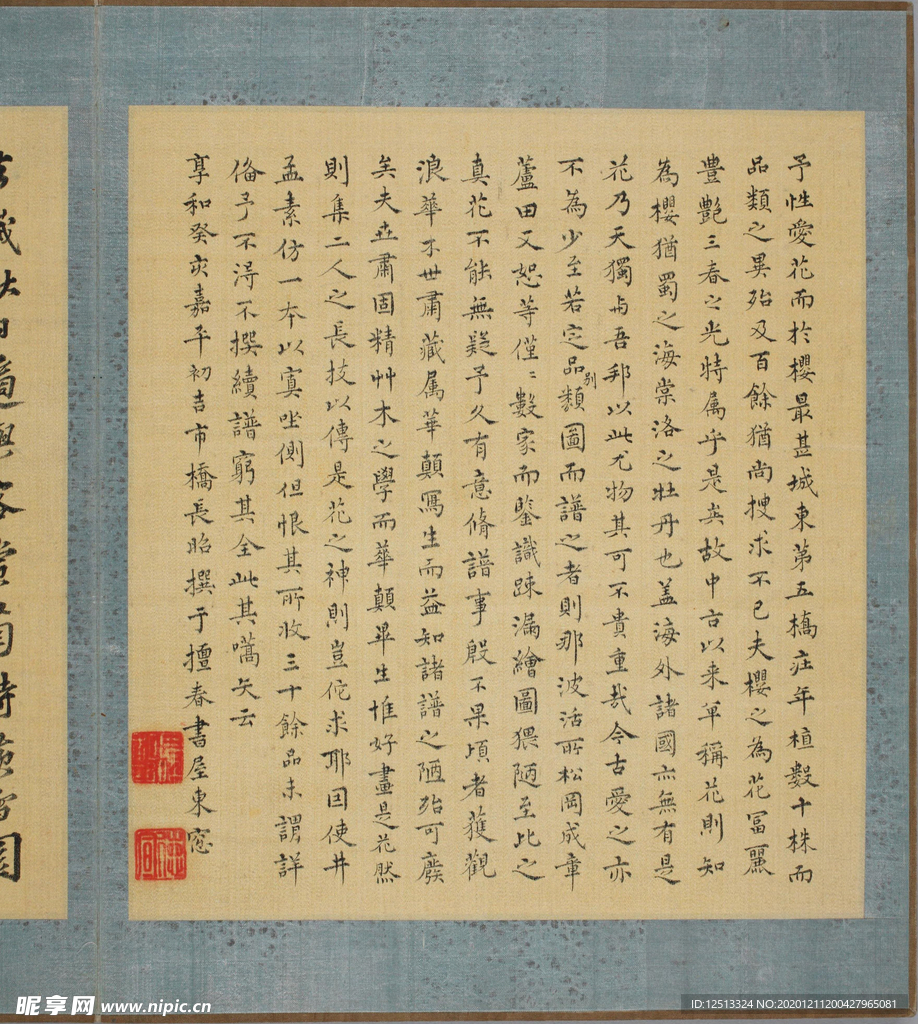 予性愛花而於櫻最甚城東第五橋莊年植數十株而
品類之異殆及百餘猶尚搜求不已夫櫻之為花冨麗
豐艷三春之光特属乎是矣故中古以来單稱花則知
為櫻猶蜀之海棠洛之牡丹也盖海外諸國亦無有是
花乃天獨與吾邦以此尤物其可不貴重哉今古愛之亦
不為少至若定品類別圖而譜之者則那波活所松岡成章
蘆田又恕等僅〻數家而鑒識踈漏繪圖猥陋至比之
真花不能無疑予久有意脩譜事殷不果頃者獲觀
浪華不世肅藏属華顛寫生而益知諸譜之陋殆可廢
矣夫世肅固精艸木之學而華顛畢生惟好畫是花然
則集二人之長技以傳是花之神則豈佗求耶因使井
孟素仿一本以寘坐側但恨其所收三十餘品未謂詳
俻予不淂不撰續譜窮其全此其嚆矢云
享和癸亥嘉平初吉市橋長昭撰于擅春書屋東窓
昵享网 www.nipic.cn
ID:12513324 NO:20201211200427965081